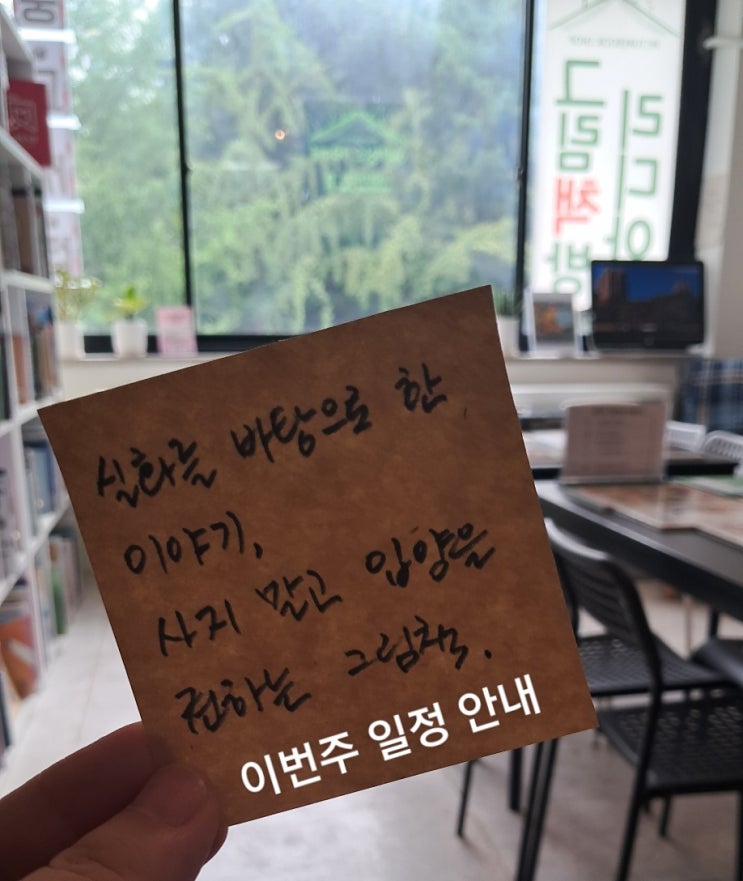 실화를 바탕으로 한
이야기,
사지 말고 입양을
권하는 그림책.
이번주 일정 안내
리디아
그림책방